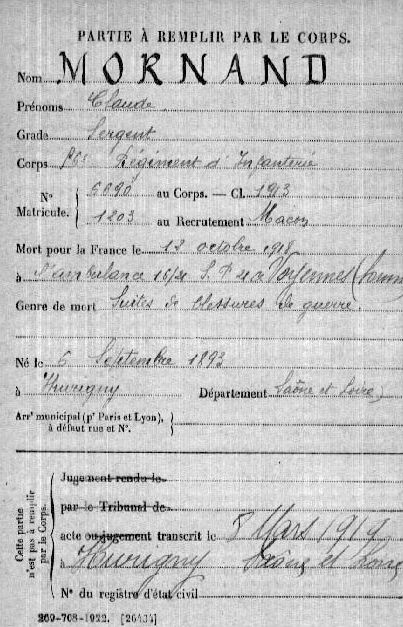 PARTIE À REMPLIR PAR LE CORPS.
Nom MORNAND
Prénoms Claude
Grade Sergent
Corps Régiment d'Infanterie
N° Matricule. 6090 au Corps. — Cl. 1913
1203 au Recrutement Macon
Mort pour la France le 12 octobre 1918
à l'ambulance 16/21 S. P. Voyennes (Somme
Genre de mort Suites de blessures de guerre.
Né le 6 Septembre 1893
à Département Saône et Loire
Arr^t municipal (p^r Paris et Lyon),
à défaut rue et N°.
Cette partie n'est pas à remplir par le Corps.
Jugement rendu le
par le Tribunal de
acte ou jugement transcrit le 8 Mars 1919
à Saône et Loire
N° du registre d'état civil
269-708-1922. [26434]